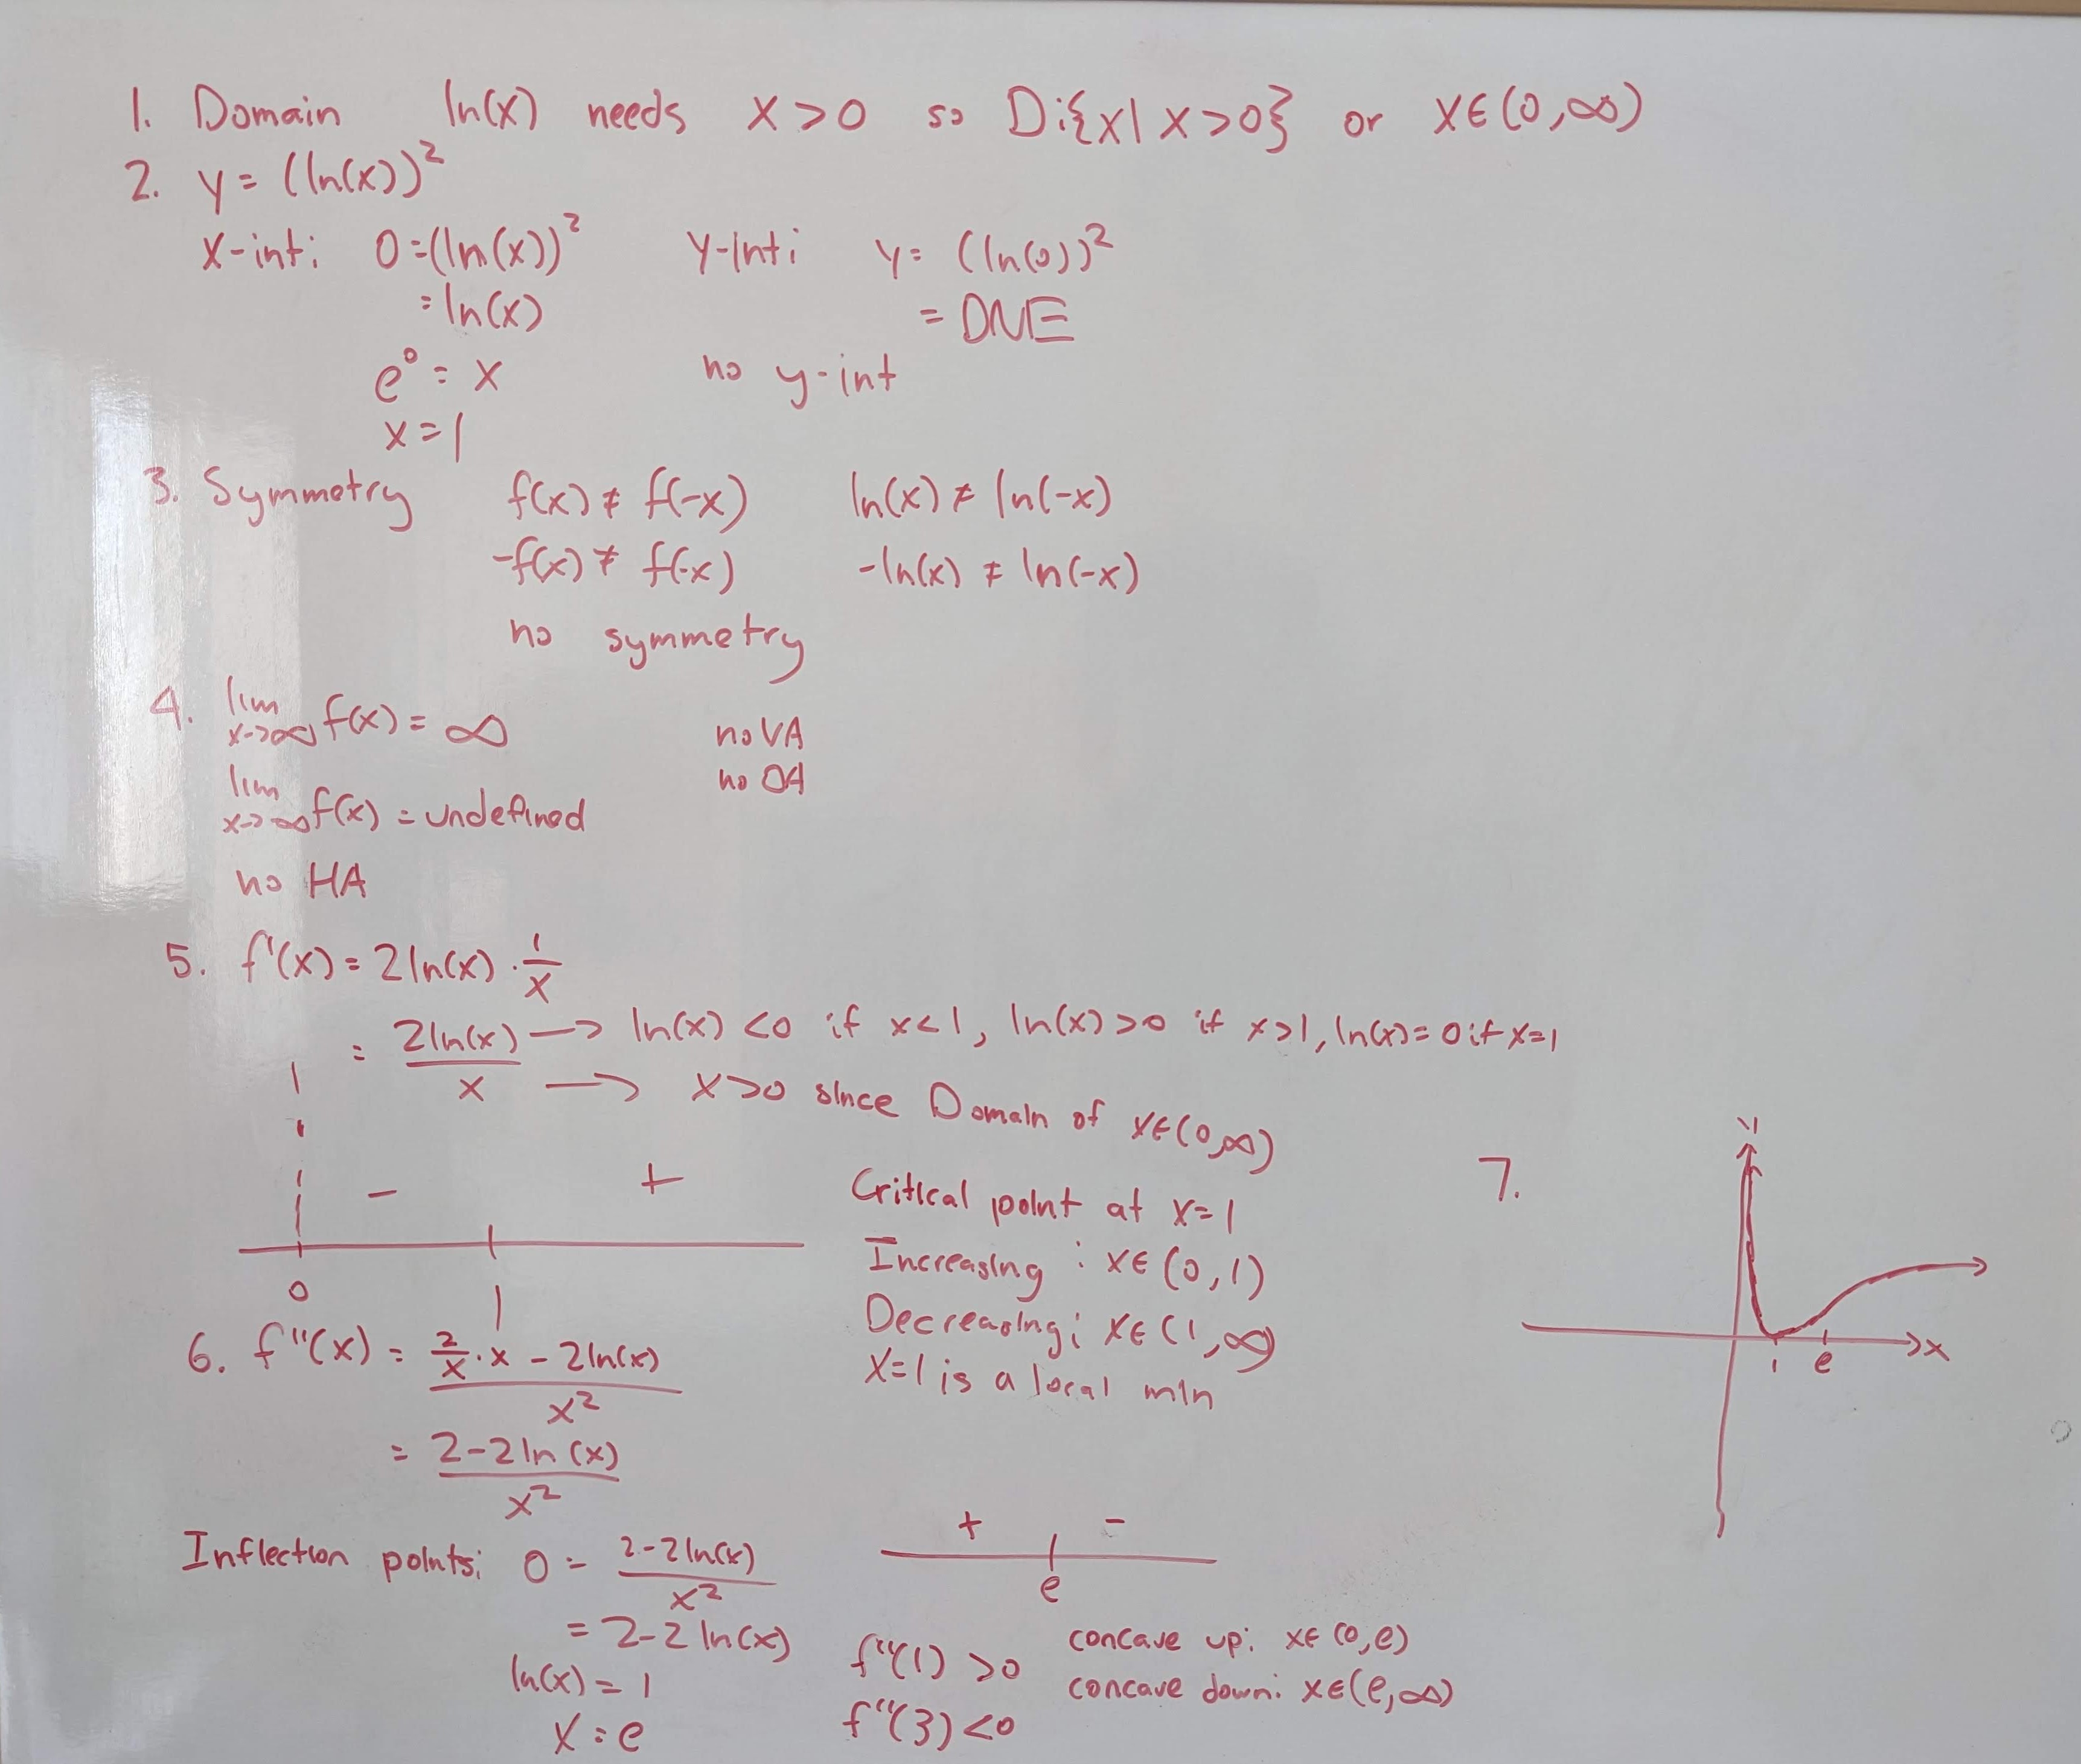 1. Domain ln(x) needs x>0 so D:{x| x>0} or x∈(0,∞)
2. y = (ln(x))²
x-int: 0=(ln(x))² y-int: y= (ln(0))²
= ln(x) = DNE
e⁰ = x no y-int
x=1
3. Symmetry f(x) ≠ f(-x) ln(x) ≠ ln(-x)
-f(x) ≠ f(-x) -ln(x) ≠ ln(-x)
no symmetry
4. lim x->∞ f(x) = ∞ no VA
no OA
lim x->-∞ f(x) = undefined
no HA
5. f'(x) = 2ln(x) · 1/x
= 2ln(x)/x -> ln(x) <0 if x<1, ln(x)>0 if x>1, ln(x)=0 if x=1
-> x>0 since Domain of x∈(0,∞)
- +
0 1
Critical point at x=1
Increasing : x∈(0,1)
Decreasing: x∈(1,∞)
x=1 is a local min
6. f''(x) = (2/x · x - 2ln(x))/x²
= (2-2ln(x))/x²
Inflection points: 0 = (2-2ln(x))/x²
= 2-2ln(x)
ln(x) = 1
x = e
+ -
e
f''(1) >0 concave up: x∈(0,e)
f''(3) <0 concave down: x∈(e,∞)
7.
y
1 e x